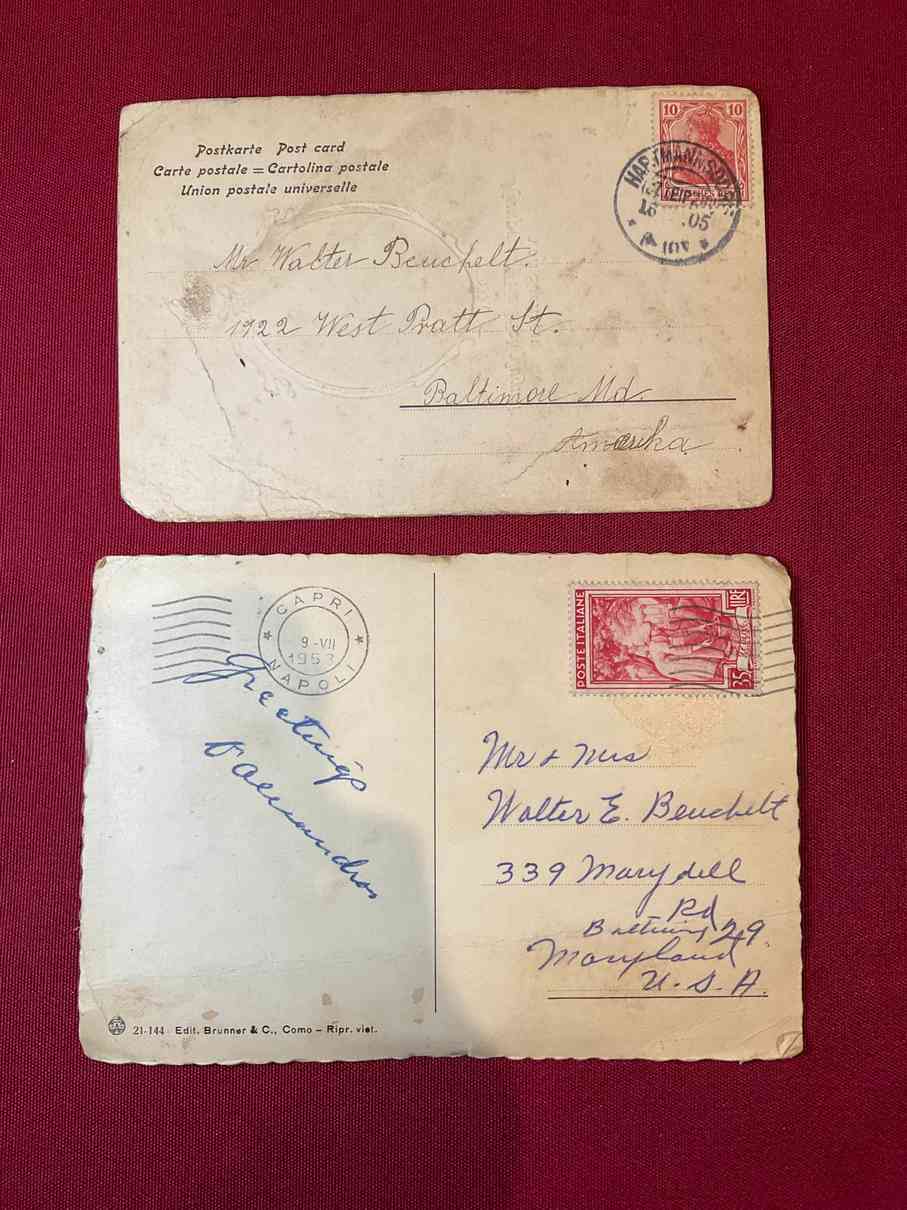 Postkarte Post card
Carte postale = Cartolina postale
Union postale universelle
10 10
HARTMANNSDORF
16 .05
Mr Walter Beuchelt.
1922 West Pratt St.
Baltimore Md.
Amerika
CAPRI
9-VII
1953
NAPOLI
POSTE ITALIANE
35 LIRE
Greetings
Mr + Mrs
Walter E. Beuchelt
339 Marydell
Rd
29
Maryland
U.S.A.
21-144 Edit. Brunner & C., Como – Ripr. viet.